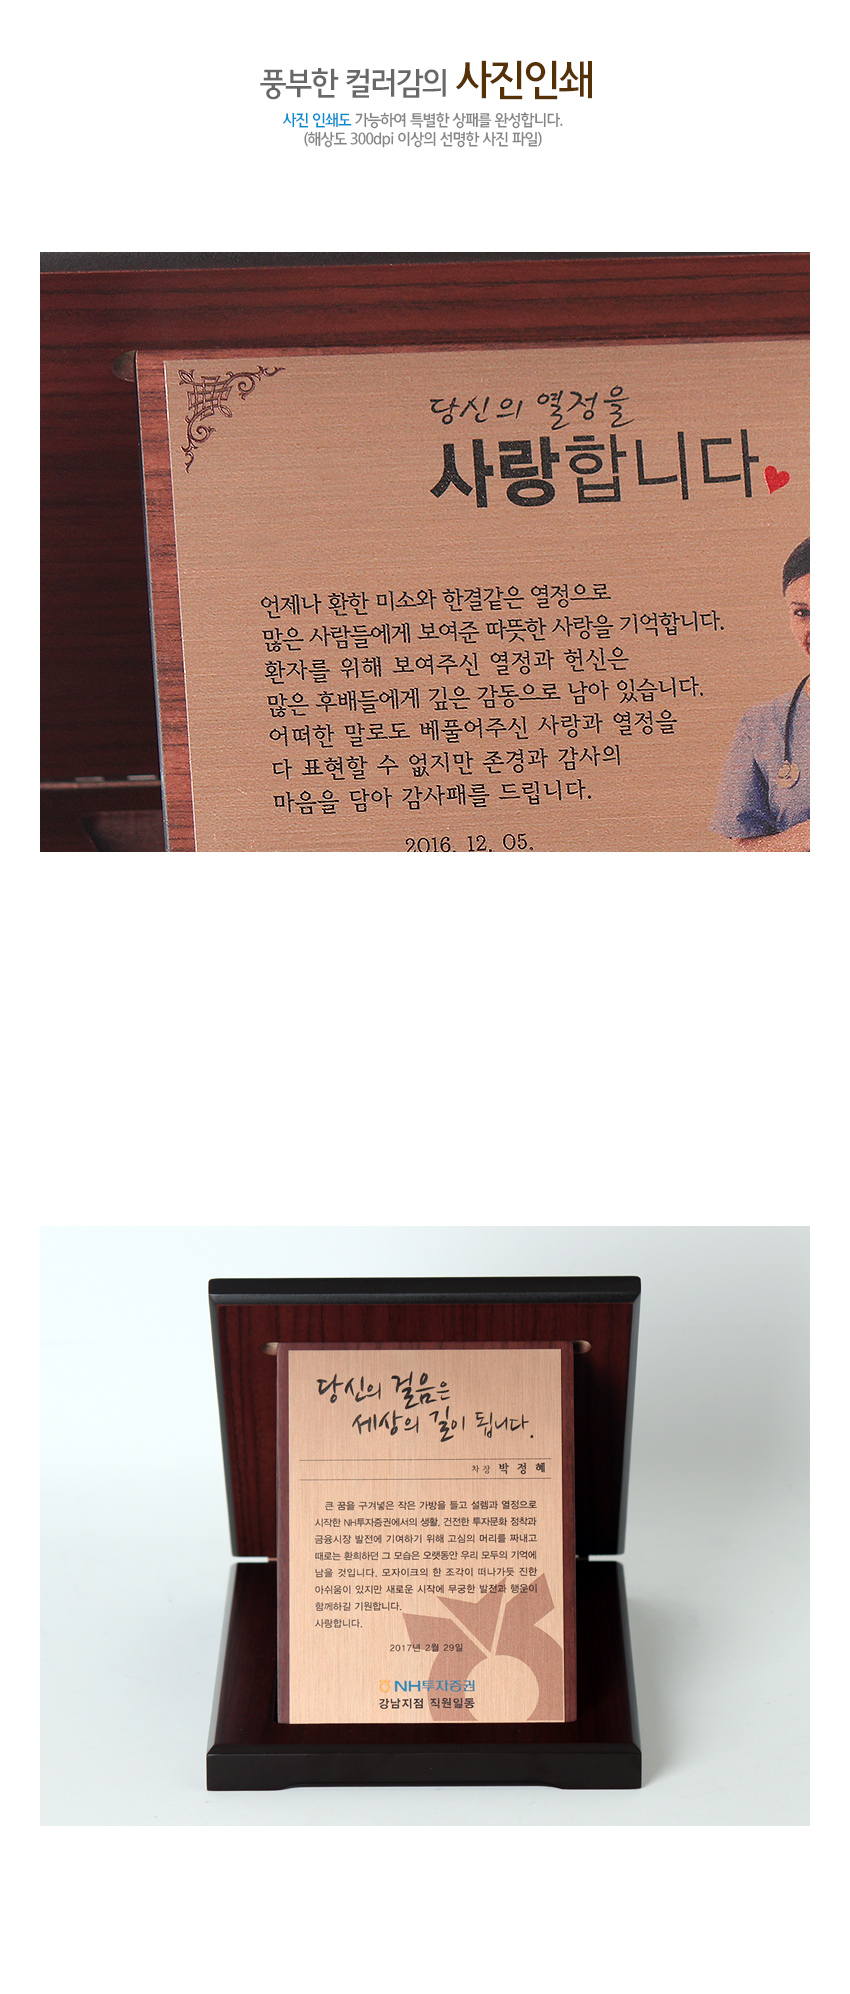 풍부한 컬러감의 사진인쇄
사진 인쇄도 가능하여 특별한 상패를 완성합니다.
(해상도 300dpi 이상의 선명한 사진 파일)
당신의 열정을
사랑합니다
언제나 환한 미소와 한결같은 열정으로
많은 사람들에게 보여준 따뜻한 사랑을 기억합니다.
환자를 위해 보여주신 열정과 헌신은
많은 후배들에게 깊은 감동으로 남아 있습니다.
어떠한 말로도 베풀어주신 사랑과 열정을
다 표현할 수 없지만 존경과 감사의
마음을 담아 감사패를 드립니다.
2016. 12. 05.
당신의 걸음은
세상의 길이 됩니다.
차장 박 정 혜
큰 꿈을 구겨넣은 작은 가방을 들고 설렘과 열정으로
시작한 NH투자증권에서의 생활. 건전한 투자문화 정착과
금융시장 발전에 기여하기 위해 고심의 머리를 짜내고
때로는 환희하던 그 모습은 오랫동안 우리 모두의 기억에
남을 것입니다. 모자이크의 한 조각이 떠나가듯 진한
아쉬움이 있지만 새로운 시작에 무궁한 발전과 행운이
함께하길 기원합니다.
사랑합니다.
2017년 2월 29일
NH투자증권
강남지점 직원일동